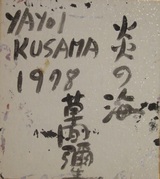 YAYOI
KUSAMA
1978
炎の海
草間彌生